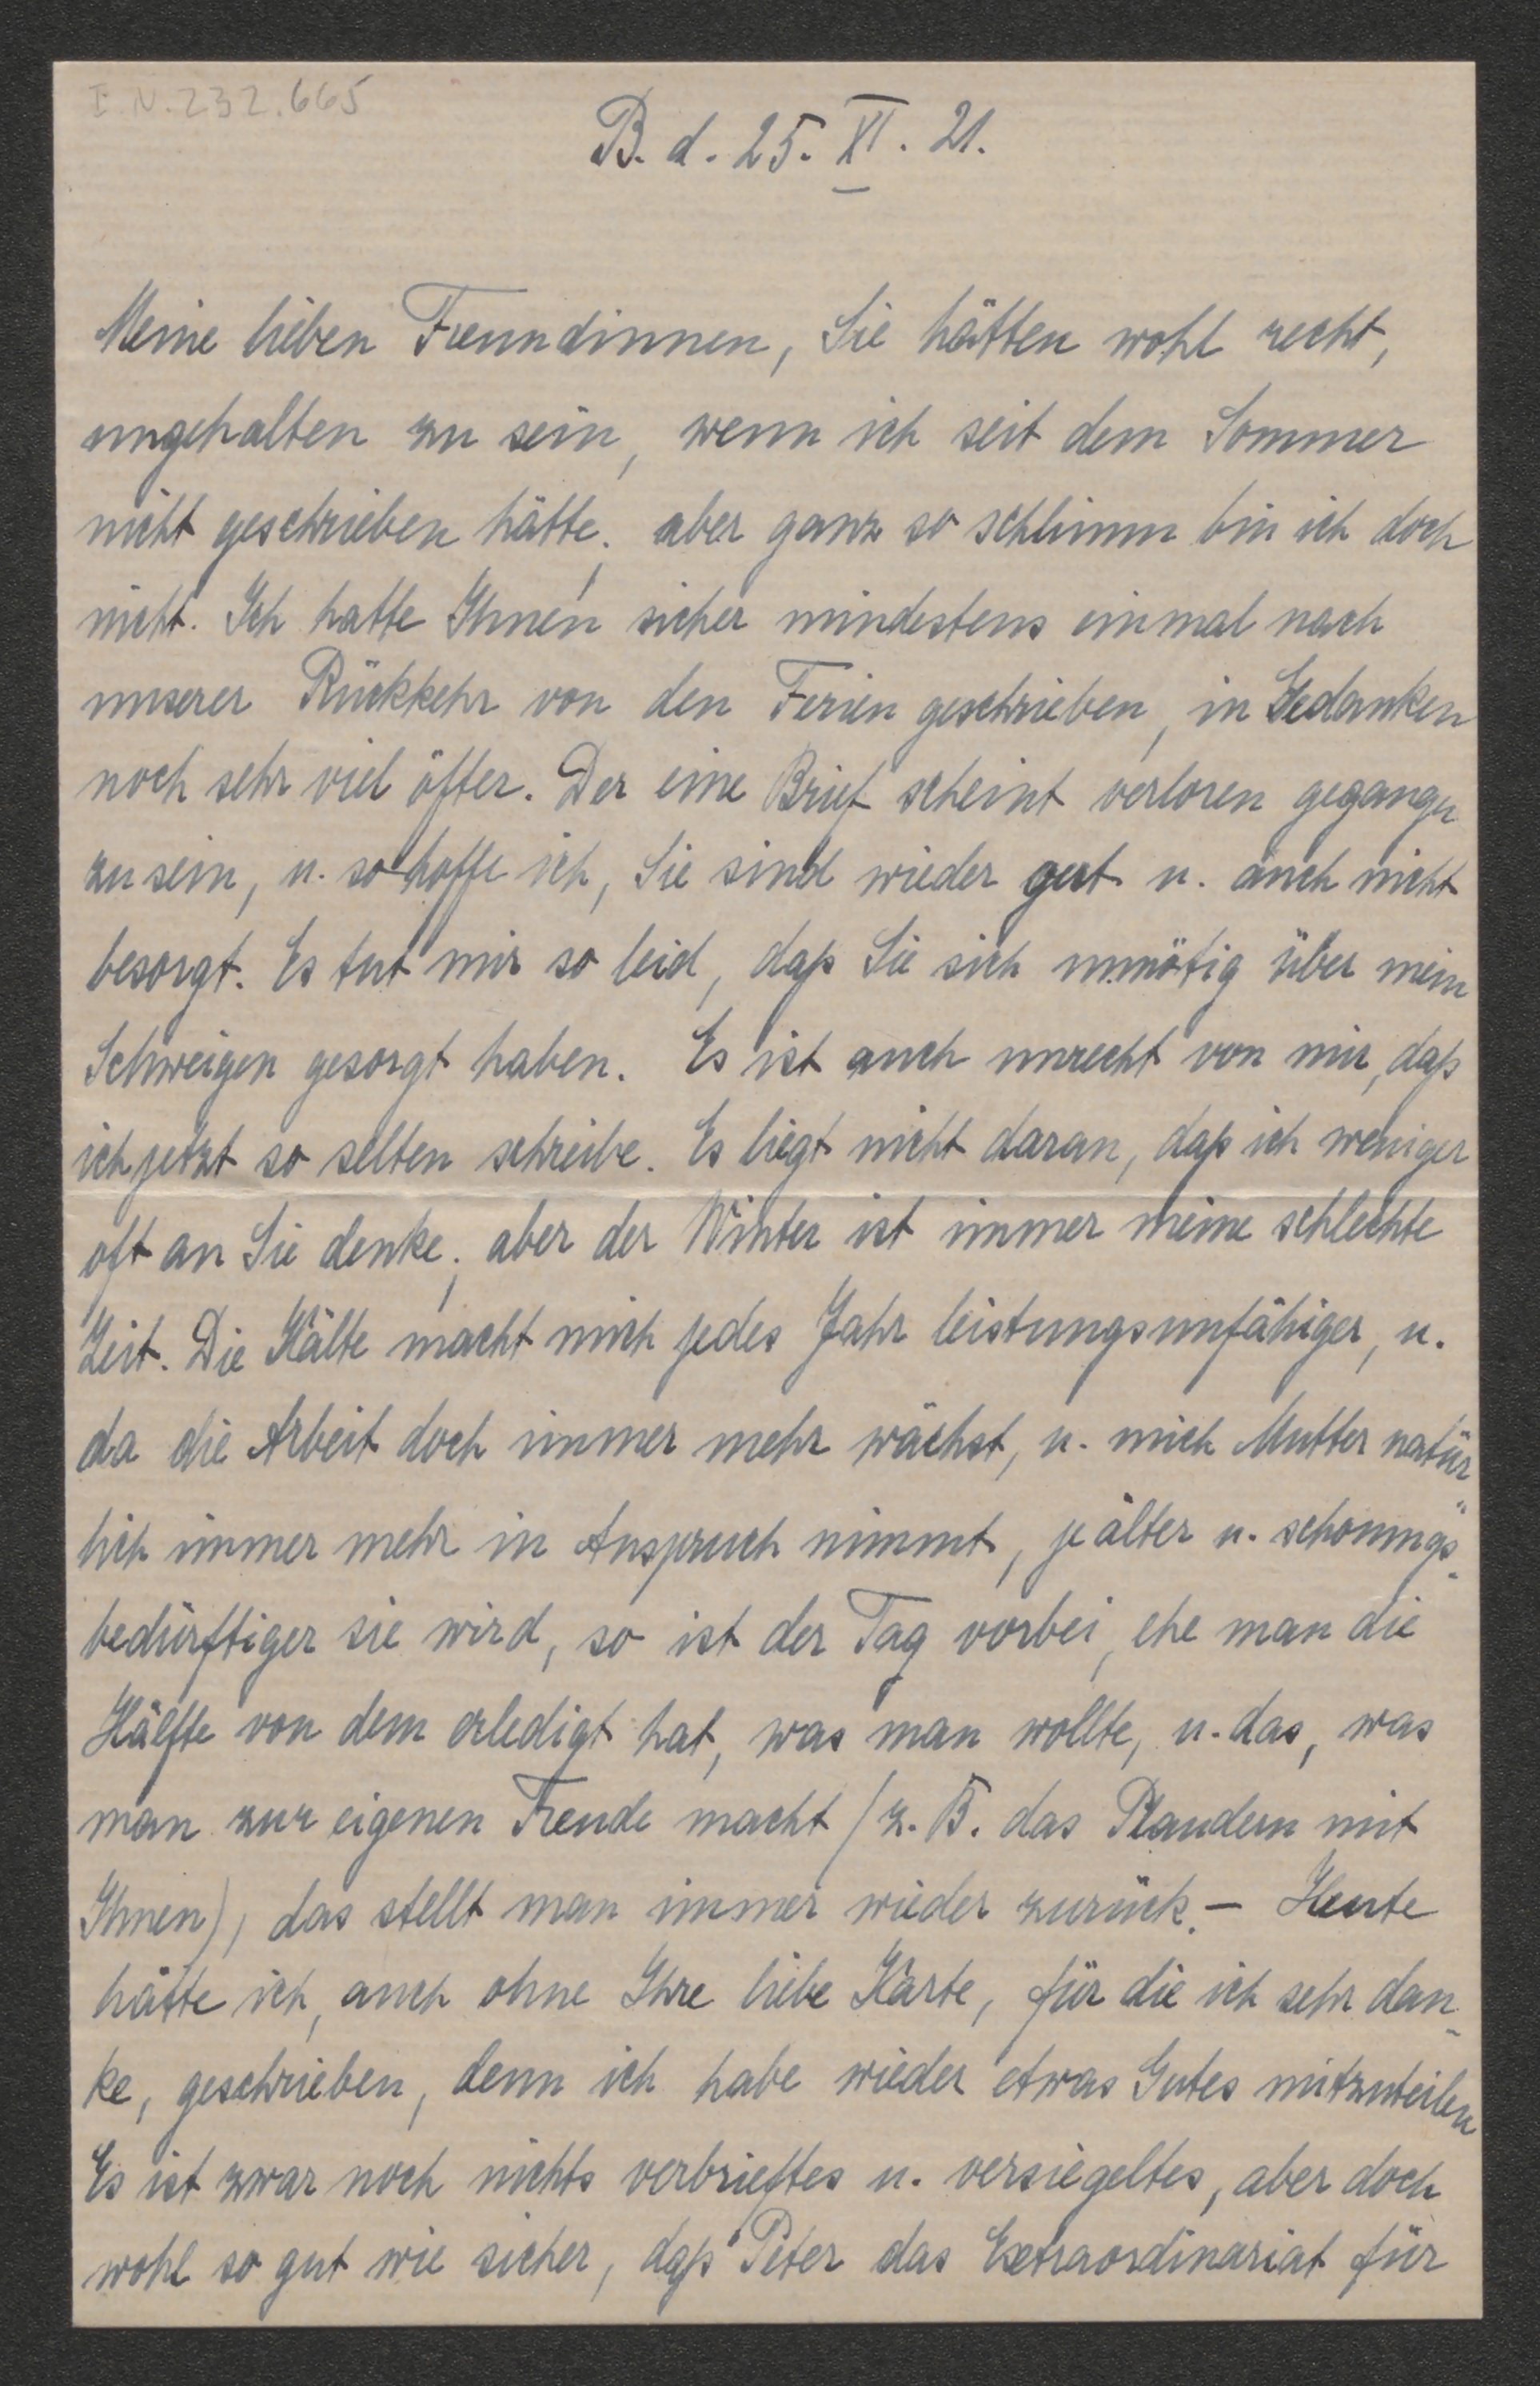 I.N.232.665
B. d. 25. XI. 21.
Meine lieben Freundinnen, Sie hätten wohl recht,
ungehalten zu sein, wenn ich seit dem Sommer
nicht geschrieben hätte; aber ganz so schlimm bin ich doch
nicht. Ich hatte Ihnen sicher mindestens einmal nach
unserer Rückkehr von den Ferien geschrieben, in Gedanken
noch sehr viel öfter. Der eine Brief scheint verloren gegangen
zu sein, u. so hoffe ich, Sie sind wieder gut u. auch nicht
besorgt. Es tut mir so leid, daß Sie sich unnötig über mein
Schweigen gesorgt haben. Es ist auch unrecht von mir, daß
ich jetzt so selten schreibe. Es liegt nicht daran, daß ich weniger
oft an Sie denke; aber der Winter ist immer meine schlechte
Zeit. Die Kälte macht mich jedes Jahr leistungsunfähiger, u.
da die Arbeit doch immer mehr wächst, u. mich Mutter natür
lich immer mehr in Anspruch nimmt, je älter u. schonungs-
bedürftiger sie wird, so ist der Tag vorbei, ehe man die
Hälfte von dem erledigt hat, was man wollte, u. das, was
man zur eigenen Freude macht (z. B. das Plaudern mit
Ihnen), das stellt man immer wieder zurück. – Heute
hätte ich, auch ohne Ihre liebe Karte, für die ich sehr dan-
ke, geschrieben, denn ich habe wieder etwas Gutes mitzuteilen
Es ist zwar noch nichts verbrieftes u. versiegeltes, aber doch
wohl so gut wie sicher, daß Peter das Extraordinariat für